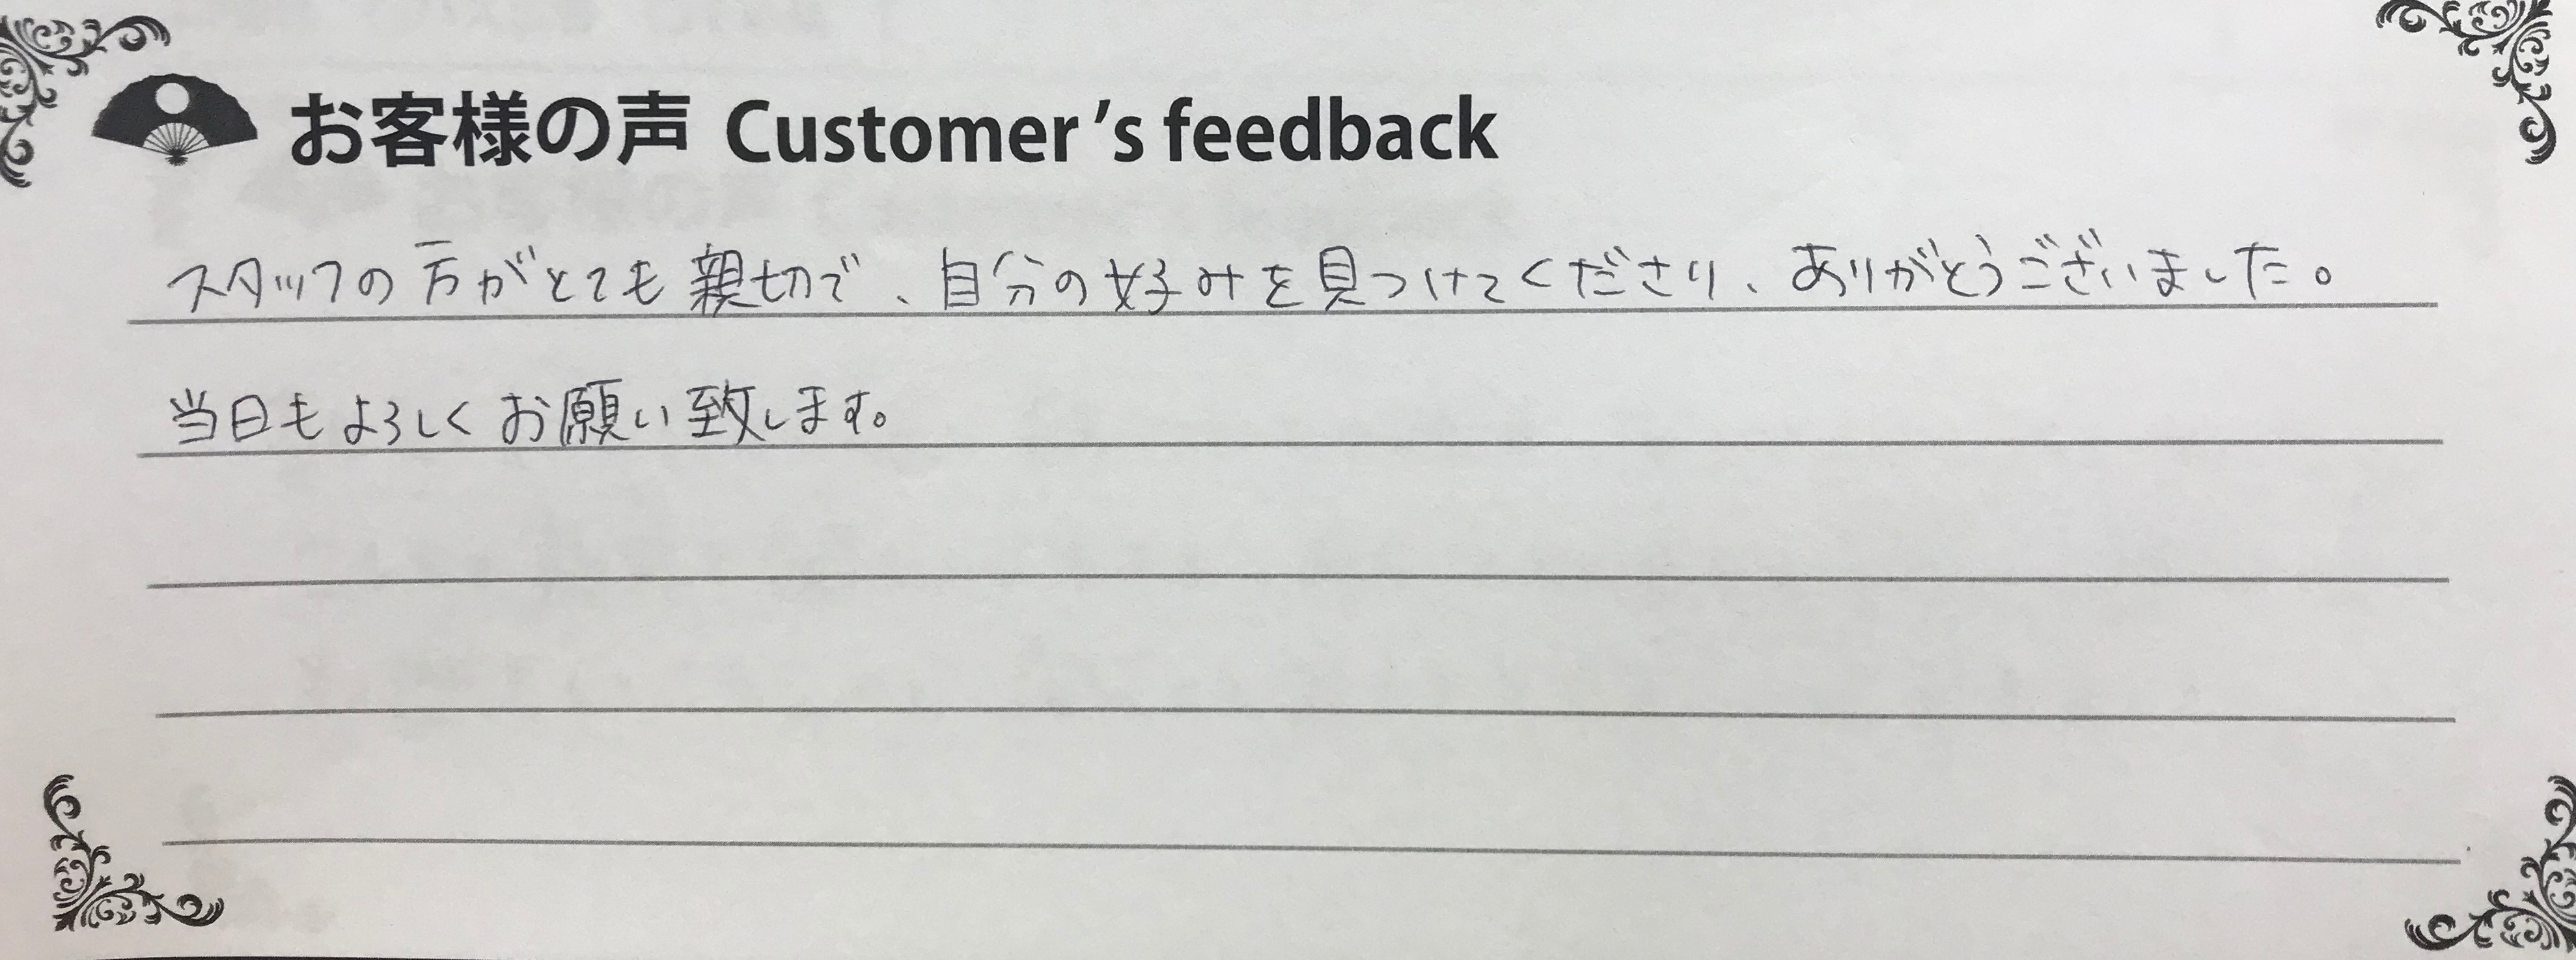 お客様の声 Customer's feedback
スタッフの方がとても親切で、自分の好みを見つけてくださり、ありがとうございました。
当日もよろしくお願い致します。